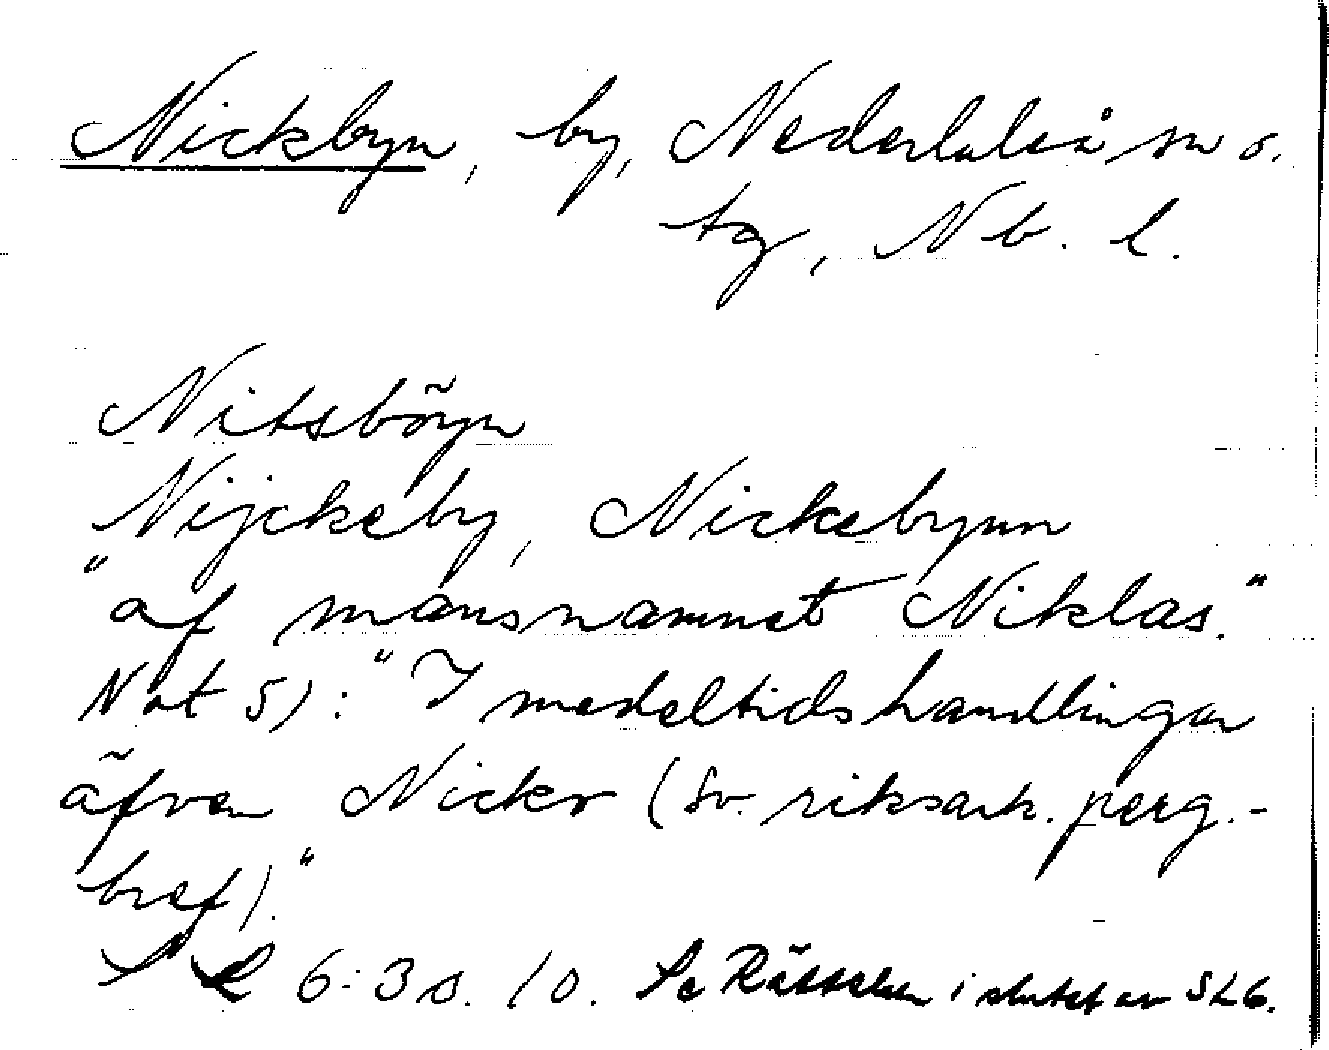 Nickbyn, by, Nederluleå sn o.
tg, Nb. l.
Nitsböyn
Nijckeby, Nickebynn
"af mansnamnet Niklas."
Not 5): "I medeltidshandlingar
äfven Nickr (Sv. riksark. perg.-
bref)."
6:3 s. 10. Se Rättelser i slutet av SL6.